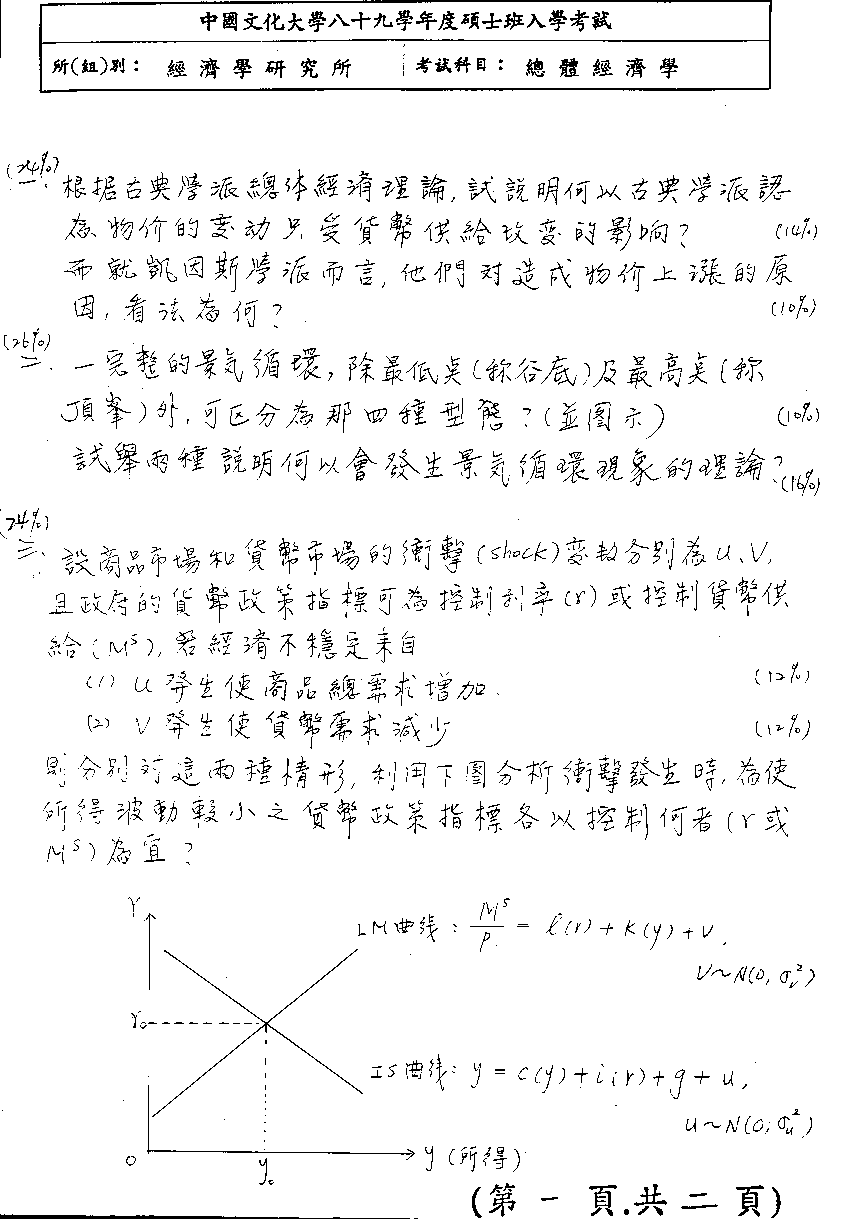 中國文化大學八十九學年度碩士班入學考試
所(組)別: 經濟學研究所 考試科目: 總體經濟學
(24%)
一. 根据古典學派總体經濟理論, 試說明何以古典學派認
為物价的变动只受貨幣供給改变的影响? (14%)
而就凱因斯學派而言, 他們对造成物价上漲的原
因, 看法為何? (10%)
(26%)
二. 一完整的景气循環, 除最低点(称谷底)及最高点(称
頂峯)外, 可区分為那四種型態? (並图示) (10%)
試舉兩種說明何以會發生景气循環現象的理論? (16%)
(24%)
三. 設商品市場和貨幣市場的衝擊(shock)变数分別為u、V,
且政府的貨幣政策指標可為控制利率(r)或控制貨幣供
給(Mˢ), 若經濟不穩定来自
(1) u 發生使商品總需求增加. (12%)
(2) V 發生使貨幣需求減少 (12%)
則分別对這兩種情形, 利用下圖分析衝擊發生時, 為使
所得波動較小之貨幣政策指標各以控制何者(r或
Mˢ)為宜?
r
LM曲线: Mˢ/P = l(r) + k(y) + V,
V~N(0, σᵥ²)
r₀
IS曲线: y = c(y) + i(r) + g + u,
u~N(0, σᵤ²)
0 y₀ y (所得)
(第一頁.共二頁)